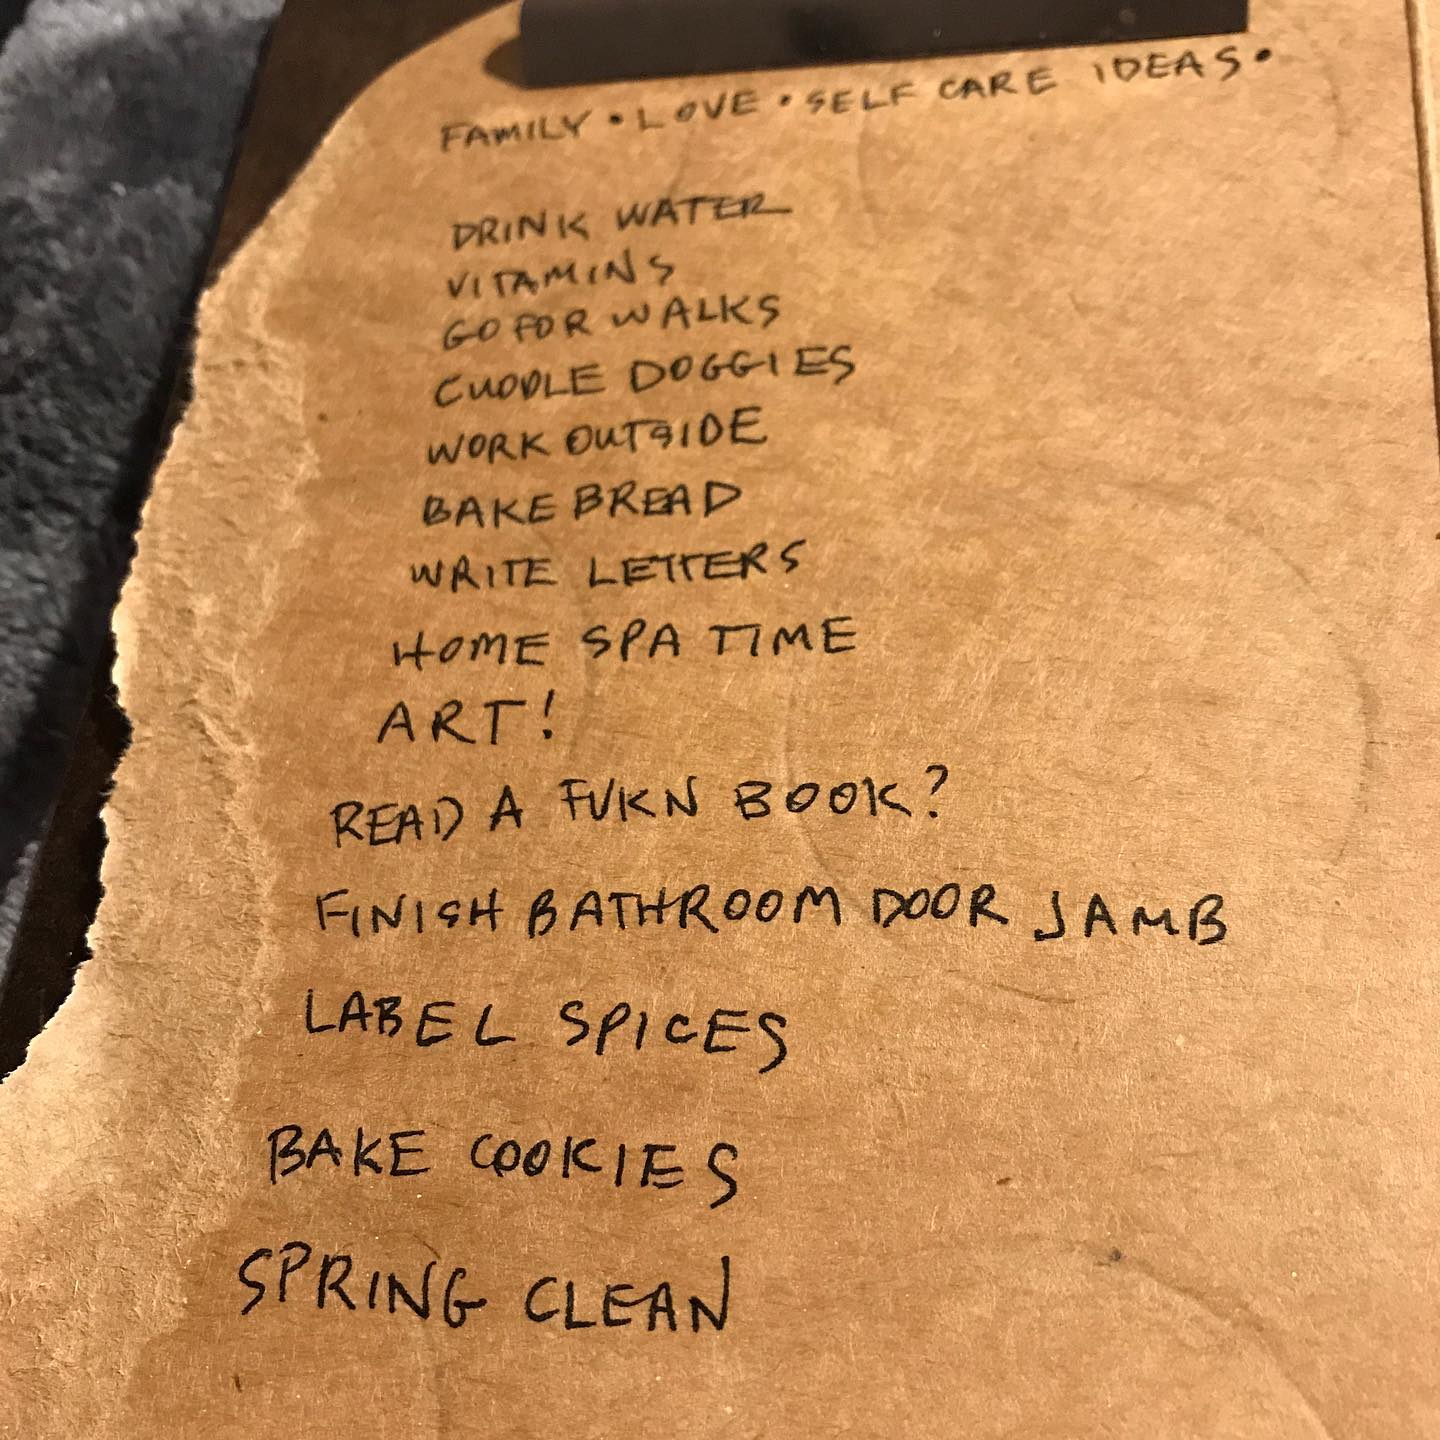 FAMILY • LOVE • SELF CARE IDEAS •
DRINK WATER
VITAMINS
GO FOR WALKS
CUDDLE DOGGIES
WORK OUTSIDE
BAKE BREAD
WRITE LETTERS
HOME SPA TIME
ART!
READ A FUKN BOOK?
FINISH BATHROOM DOOR JAMB
LABEL SPICES
BAKE COOKIES
SPRING CLEAN